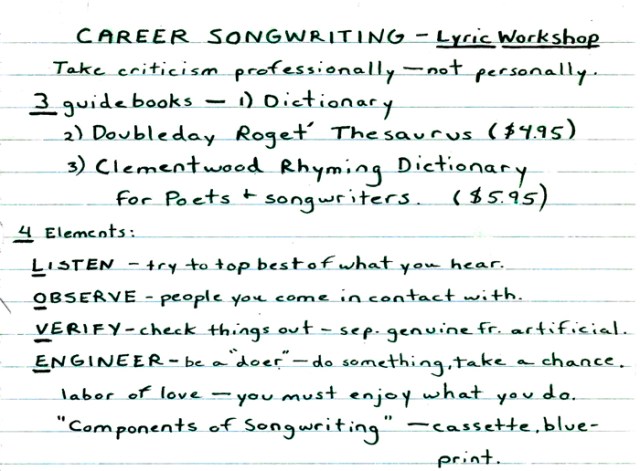 CAREER SONGWRITING - Lyric Workshop
Take criticism professionally - not personally.
3 guidebooks - 1) Dictionary
2) Doubleday Roget' Thesaurus ($4.95)
3) Clementwood Rhyming Dictionary
for Poets + songwriters. ($5.95)
4 Elements:
LISTEN - try to top best of what you hear.
OBSERVE - people you come in contact with.
VERIFY - check things out - sep. genuine fr. artificial.
ENGINEER - be a "doer" - do something, take a chance.
labor of love - you must enjoy what you do.
"Components of Songwriting" - cassette, blue-
print.